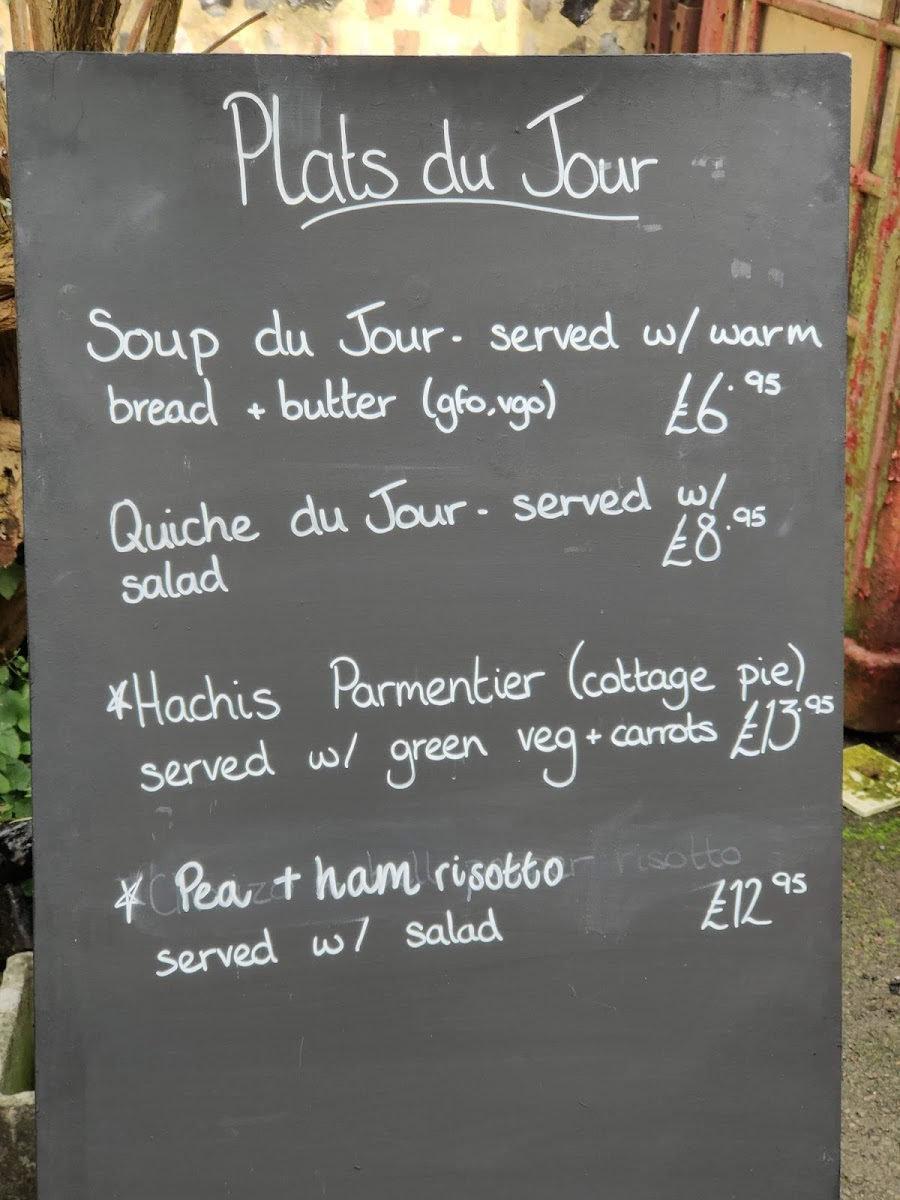 Plats du Jour
Soup du Jour - served w/ warm
bread + butter (gfo, vgo) £6.95
Quiche du Jour - served w/
salad £8.95
*Hachis Parmentier (cottage pie)
served w/ green veg + carrots £13.95
* Pea + ham risotto risotto
served w/ salad £12.95